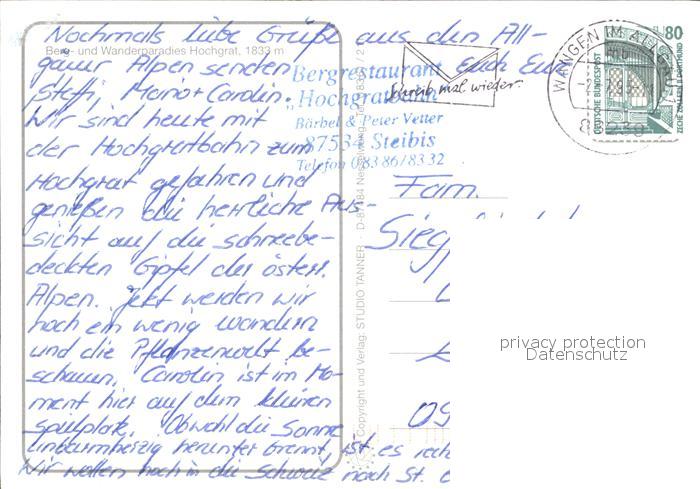 Nochmals liebe Grüße aus den All-
Berg- und Wanderparadies Hochgrat, 1833 m
gäuer Alpen senden Euch Eure
Steffi, Mario + Carolin.
Wir sind heute mit
der Hochgratbahn zum
Hochgrat gefahren und
genießen die herrliche Aus-
sicht auf die schneebe-
deckten Gipfel der österr.
Alpen. Jetzt werden wir
noch ein wenig wandern
und die Pflanzenwelt be-
schauen. Carolin ist im Mo-
ment hier auf dem kleinen
Spielplatz. Obwohl die Sonne
unbarmherzig herunter brennt, ist es
Wir wollen noch in die Schweiz nach St.
Bergrestaurant
"Hochgratbahn"
Bärbel & Peter Vetter
87534 Steibis
Telefon 0 83 86 / 83 32
Schreib mal wieder.
WANGEN IM ALLGÄU
DEUTSCHE BUNDESPOST
80
ZECHE ZOLLERN II DORTMUND
Copyright und Verlag: STUDIO TANNER
Fam.
09
privacy protection
Datenschutz